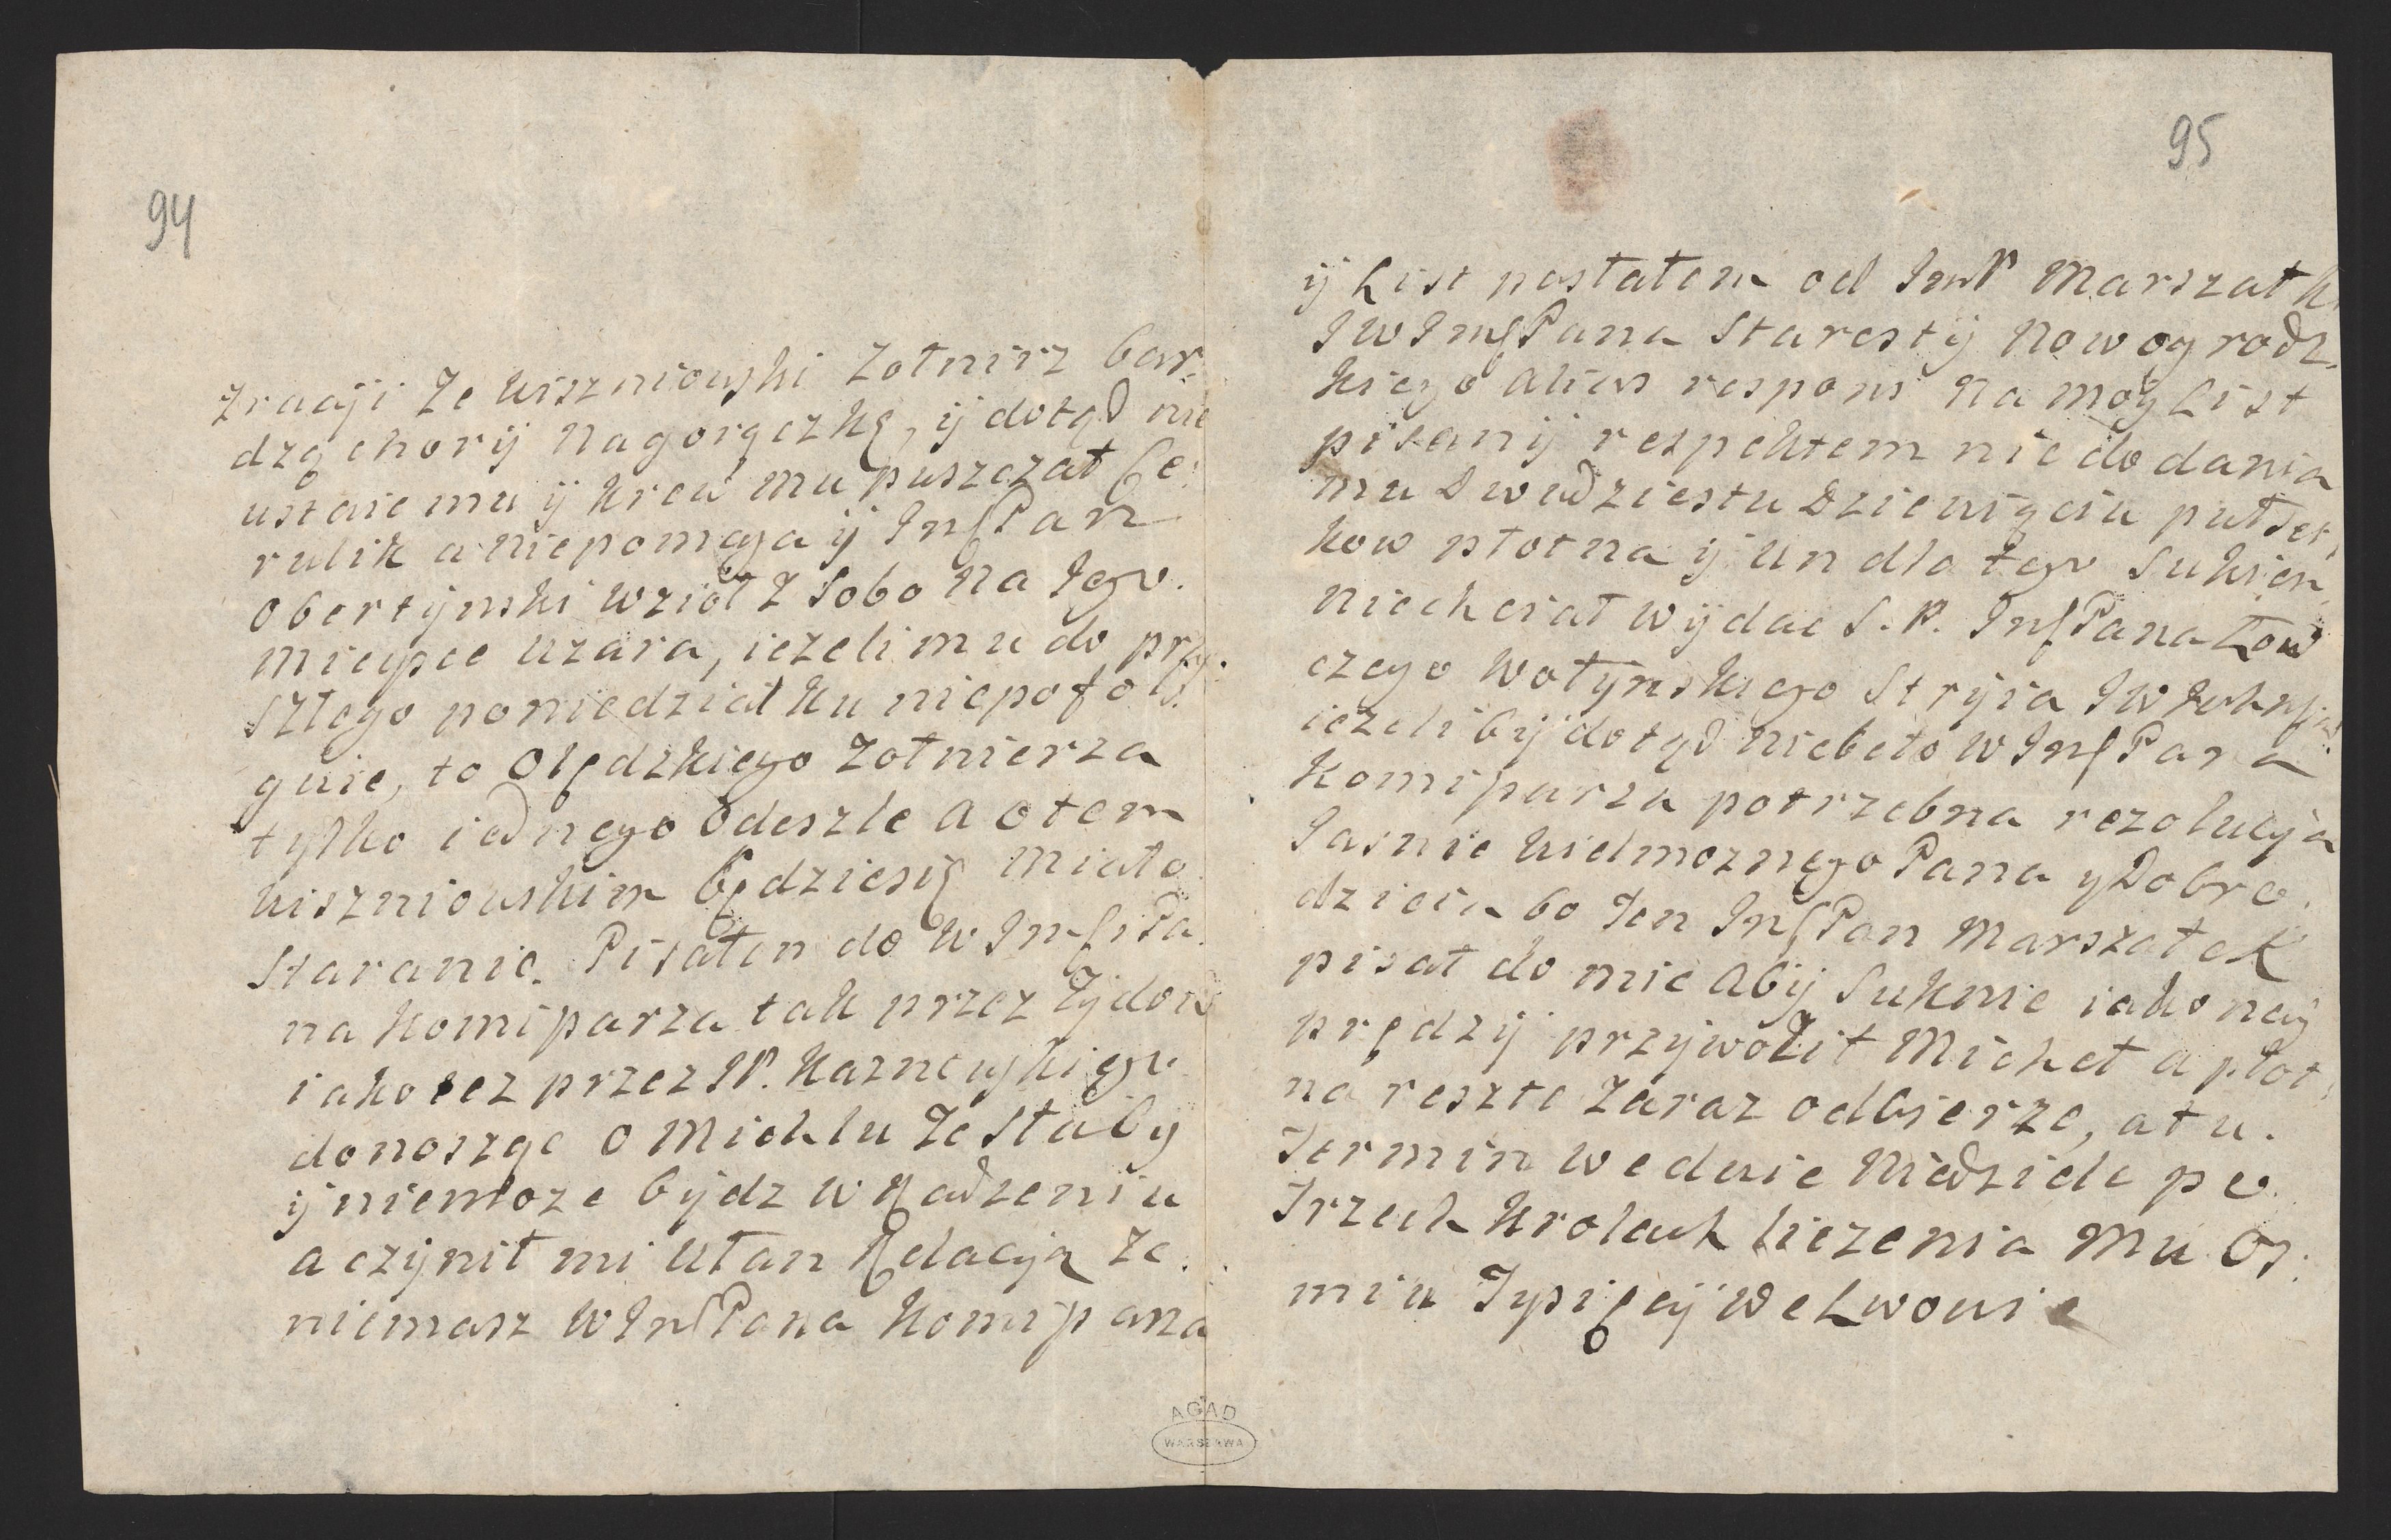 94
zracyi Ze Wiszniowski Zołnirz bar:
dzo chorij na gorączkę, ij dotąd nie
ustaie mu ij krew mu puszczał Ce:
rulik a niepomaga ij ImſPan
Obertynski wzioł z sobo na Iego.
mieysce Uzara, iezeli mu do przy:
szłego poniedziałku niepofol:
guie, to Olędzkiego Zołnierza
tylko iednego odeszle a otem
Wiszniowskim będziesię miało
staranie. Pisałem do W ImſPa
na Komiſsarza tak przez Zydow
iako tez przez IP. Kaznowskiego
donosząc o Michlu Ze Słaby
ij niemoze bydz w
a czynił mi Ułan Relacyą Ze.
niemasz W ImſPana Komiſsarza
95
ij List posłałem od ImP Marszałk
IW ImſPana Starosty Nowogrodz
kiego alias respons na moy List
pisanij respektem nie dodania
mu Dwudziestu Dziewięciu pułset
kow płotna ij Un dla tego Sukien
niechciał wydac S. P. ImſPana Łow
czego Wołynskiego Stryia IW
iezeli bij dotąd niebeło W ImſPana
Komiſsarza potrzebna rezolucyja
Iasnie Wielmoznego Pana y Dobro.
dzieia bo Ten ImſPan Marszałek
pisał do mie abij Suknie iako nay
prędzij przijwoził Micheł a płot
na reszte Zaraz odbierze, a tu.
Termin we dwie Niedziele po
Trzech Krolach liczenia mu Os:
miu Tysięcij we Lwowie
AGAD
WARSZAWA